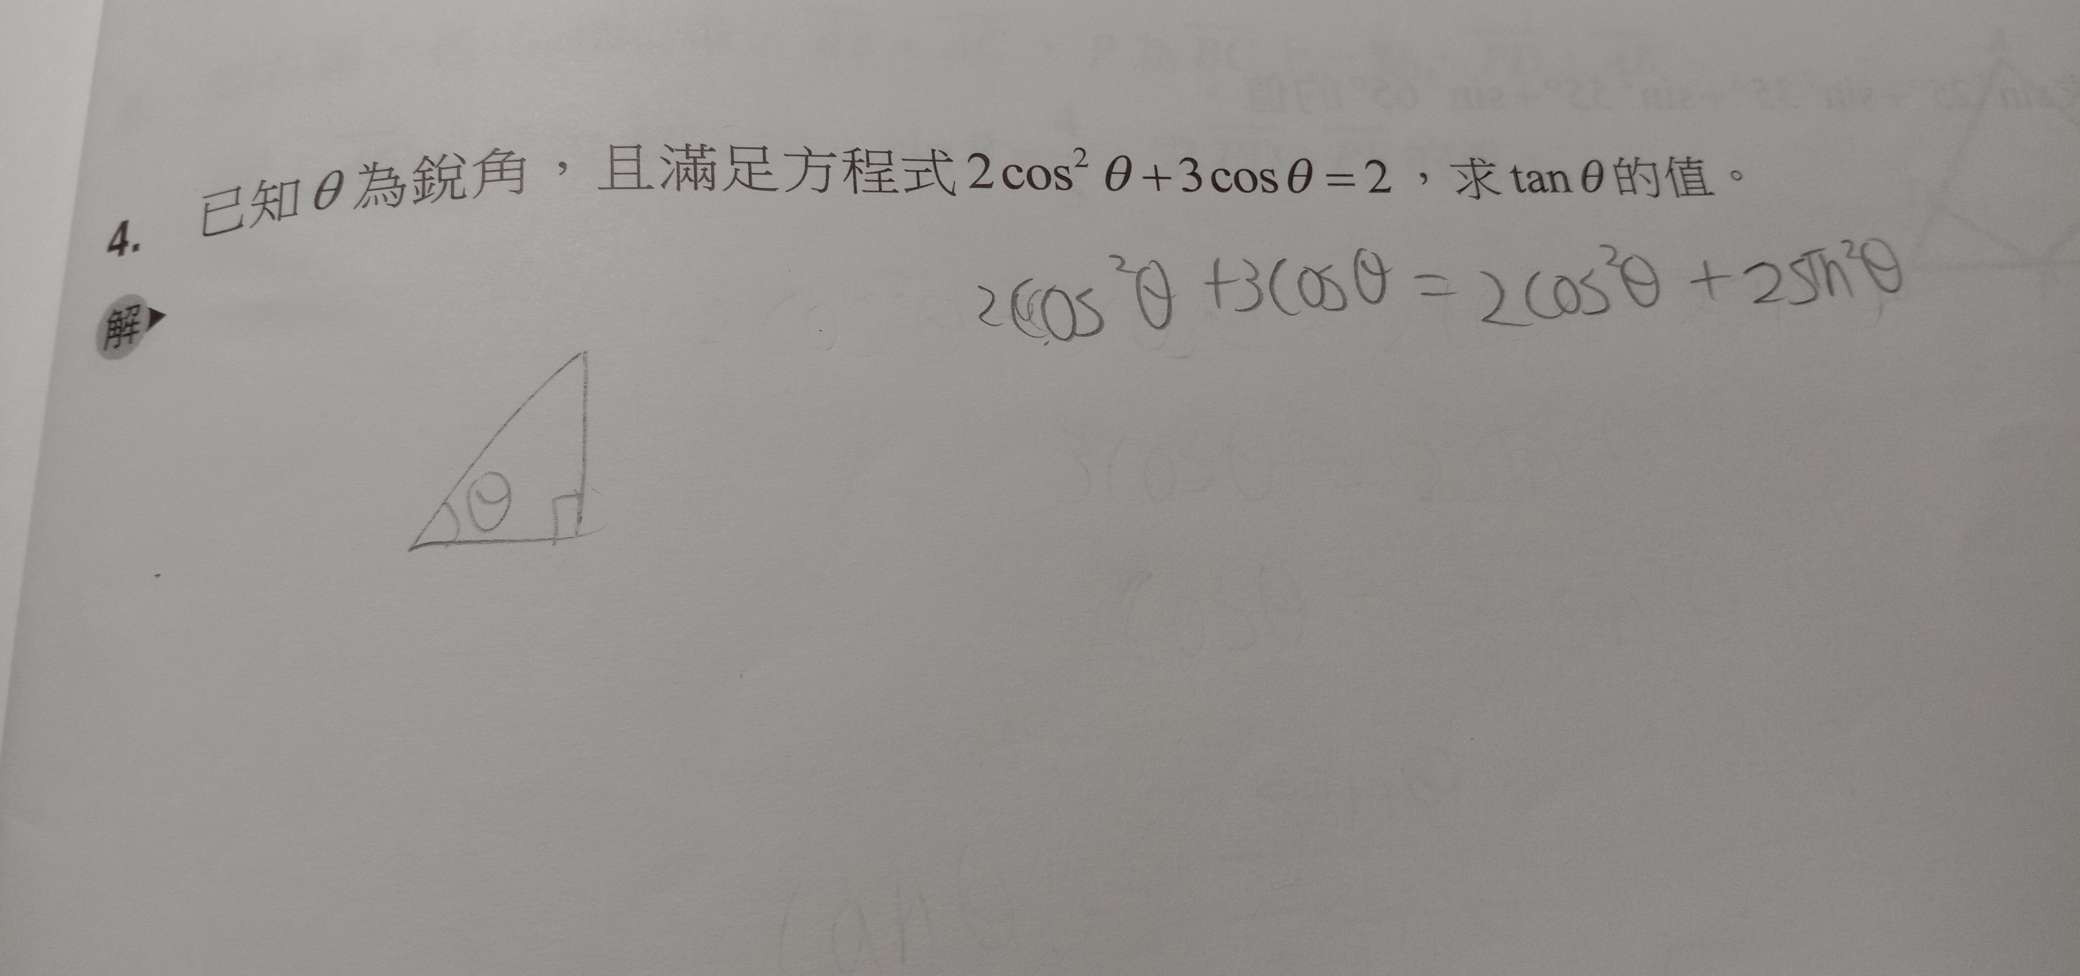 4. 已知θ為銳角，且滿足方程式2cos² θ+3cosθ=2，求tanθ的值。
2cos²θ+3cosθ=2cos²θ+2sin²θ
解
θ